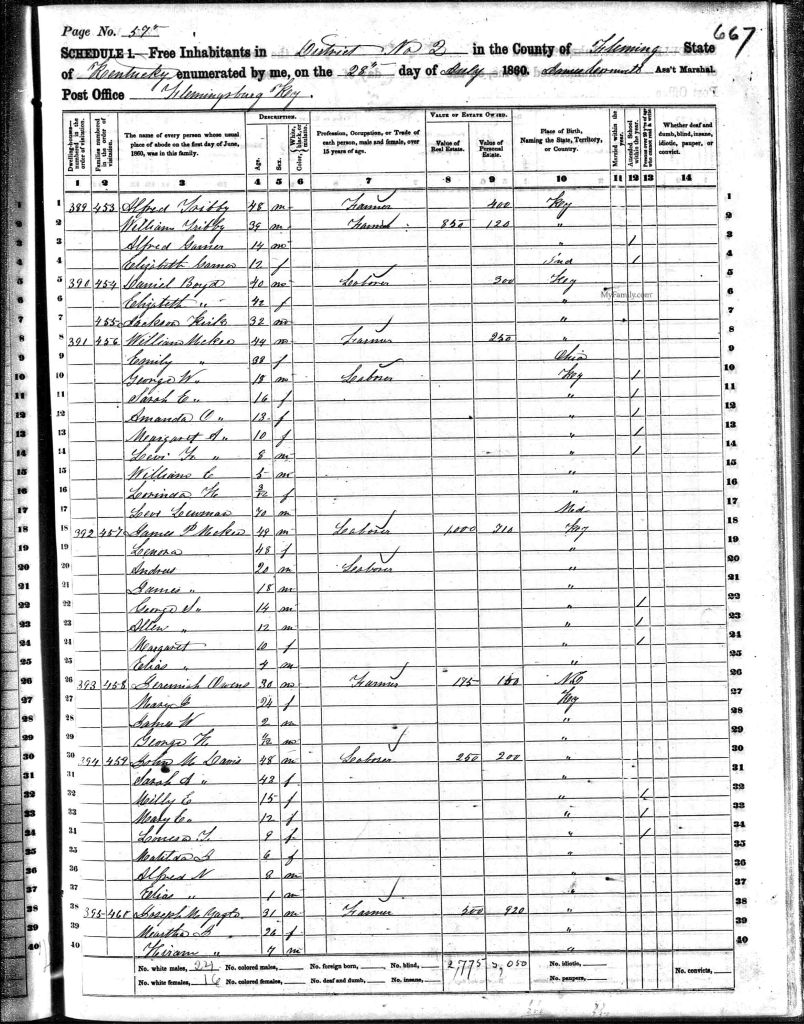 Page No. 57
667
SCHEDULE 1.—Free Inhabitants in District No 2 in the County of Fleming State
of Kentucky enumerated by me, on the 28th day of July 1860. Ass't Marshal.
Post Office Flemingsburg Ky.
DESCRIPTION.
VALUE OF ESTATE OWNED.
Dwelling-houses numbered in the order of visitation.
Families numbered in the order of visitation.
The name of every person whose usual place of abode on the first day of June, 1860, was in this family.
Age.
Sex.
Color, White, black, or mulatto.
Profession, Occupation, or Trade of each person, male and female, over 15 years of age.
Value of Real Estate.
Value of Personal Estate.
Place of Birth, Naming the State, Territory, or Country.
Married within the year.
Attended School within the year.
Whether deaf and dumb, blind, insane, idiotic, pauper, or convict.
1 2 3 4 5 6 7 8 9 10 11 12 13 14
1 389 453 Alfred 48 m Farmer 400 Key 1
2 William 39 m Farmer 850 120 " 2
3 Alfred 14 m " / 3
4 Elizabeth 12 f Ind / 4
5 390 454 Daniel Boyd 40 m Laborer 300 Key 5
6 Elizabeth " 42 f " 6
MyFamily.com
7 455 Jackson Kirk 32 m " 7
8 391 456 William McKee 44 m Farmer 250 " 8
9 Emily " 38 f Ohio 9
10 George W " 18 m Laborer Key / 10
11 Sarah E " 16 f " / 11
12 Amanda " 13 f " / 12
13 Meargaret A " 10 f " / 13
14 Levi " 8 m " / 14
15 William C 5 m " 15
16 Lorinda f " 16
17 Levi 70 m Md 17
18 392 457 James P McKee 49 m Laborer 1000 710 Key 18
19 Lenora 48 f " 19
20 Andrew 20 m Laborer " 20
21 James " 18 m " 21
22 George S " 14 m " / 22
23 Allen " 12 m " / 23
24 Margaret 10 f " / 24
25 Elias " 4 m " 25
26 393 458 Jeremiah Owens 30 m Farmer 175 150 N.C 26
27 Mary 24 f Key 27
28 James W 2 m " 28
29 George m " 29
30 394 459 John M Davis 48 m Laborer 250 200 " 30
31 Sarah A " 43 f " 31
32 Milly E 15 f " / 32
33 Mary E 12 f " / 33
34 Louisa 9 f " / 34
35 Matilda 6 f " 35
36 Alfred N 3 m " 36
37 Elias " 1 m " 37
38 395 460 Joseph M 31 m Farmer 500 920 " 38
39 Meartha 24 f " 39
40 Hiram " 7 m " 40
No. white males, 24 No. colored males, No. foreign born, No. blind, 2,775 3,050 No. idiotic, No. convicts,
No. white females, 16 No. colored females, No. deaf and dumb, No. insane, No. paupers,